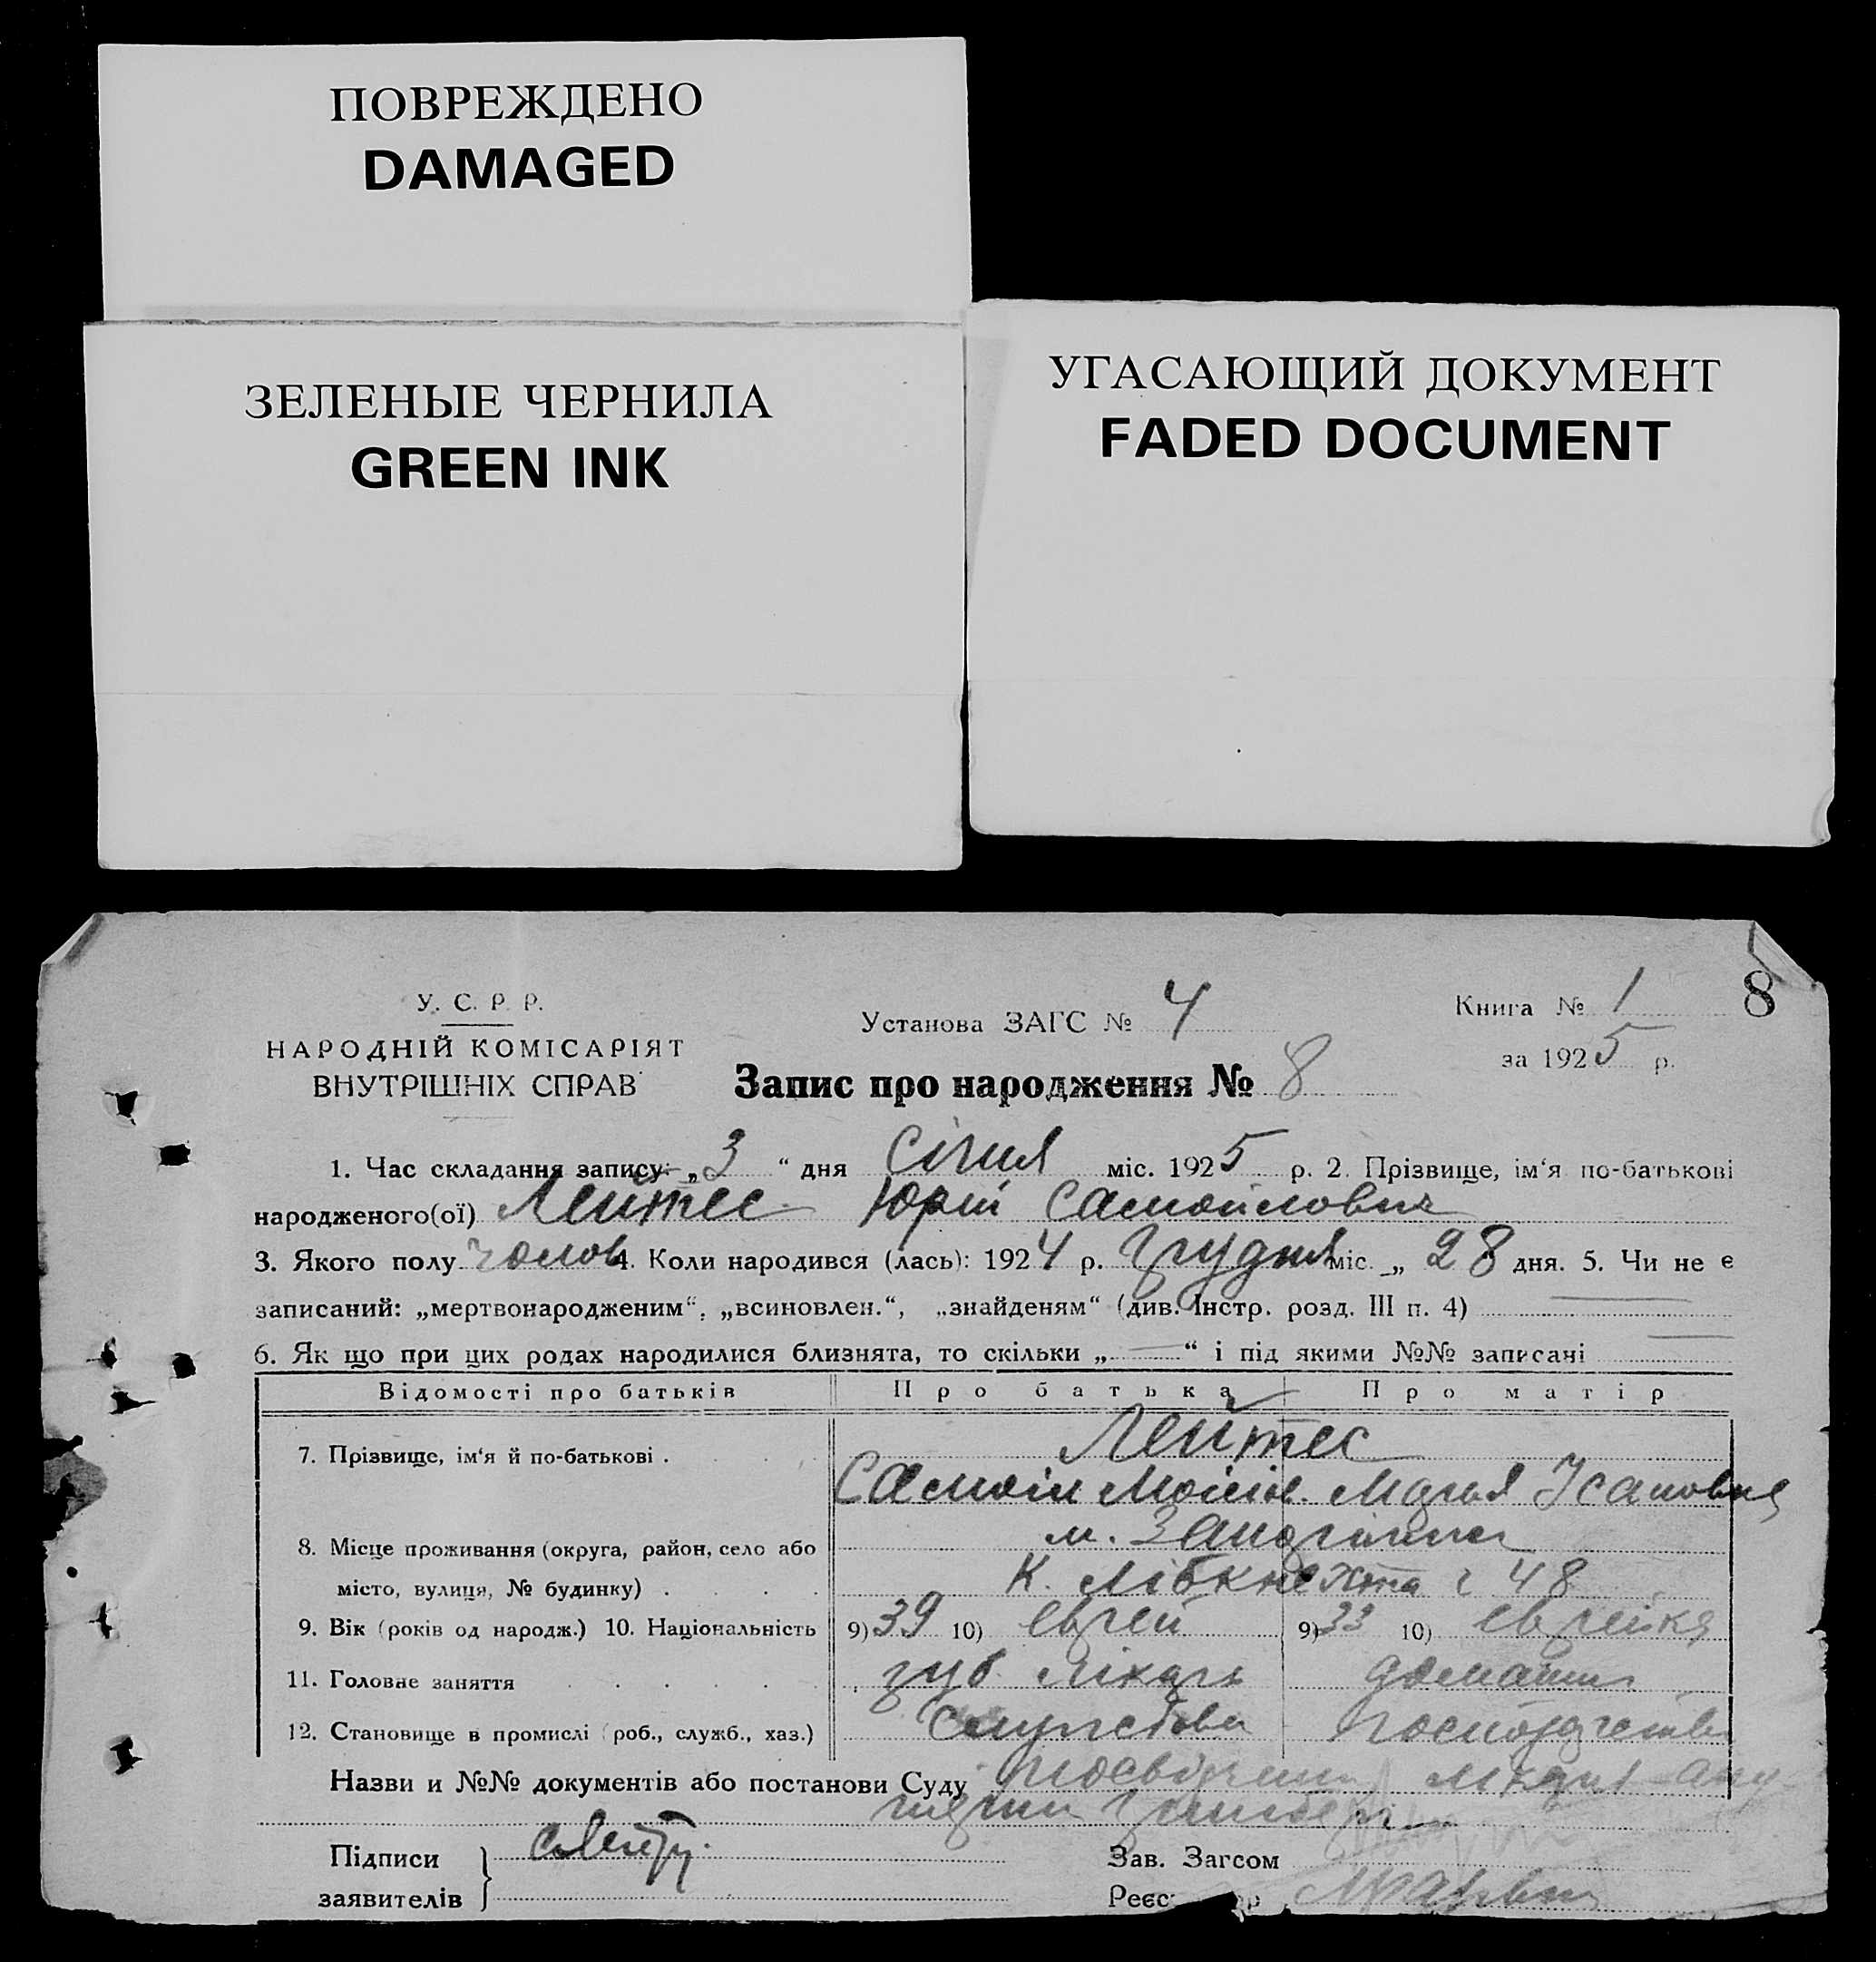 ПОВРЕЖДЕНО
DAMAGED
ЗЕЛЕНЫЕ ЧЕРНИЛА
GREEN INK
УГАСАЮЩИЙ ДОКУМЕНТ
FADED DOCUMENT
У. С. Р. Р.
НАРОДНІЙ КОМІСАРІЯТ
ВНУТРІШНІХ СПРАВ
Установа ЗАГС № 4
Книга № 1
8
за 1925 р.
Запис про народження № 8
1. Час складання запису: „3“ дня Січня міс. 1925 р. 2. Прізвище, ім‘я по-батькові
народженого(ої) Лейтес Юрій Самойлович
3. Якого полу чолов 4. Коли народився (лась): 1924 р. Грудня міс. „28 дня. 5. Чи не є
записаний: „мертвонародженим“, „всиновлен.“, „знайденям“ (див. Інстр. розд. III п. 4)
6. Як що при цих родах народилися близнята, то скільки „—“ і під якими №№ записані
Відомості про батьків Про батька Про матір
7. Прізвище, ім‘я й по-батькові . Лейтес
Самоіл Моісіов. Марья Ісаковна
8. Місце проживання (округа, район, село або м.
місто, вулиця, № будинку) . К. Лібкнехта 48
9. Вік (років од народж.) 10. Національність 9) 39 10) еврей 9) 33 10) еврейка
11. Головне заняття зуб. лікарь домашнє
12. Становище в промислі (роб., служб., хаз.) Службов господарство
Назви и №№ документів або постанови Суду
Підписи
заявителів
Зав. Загсом
Реєс р